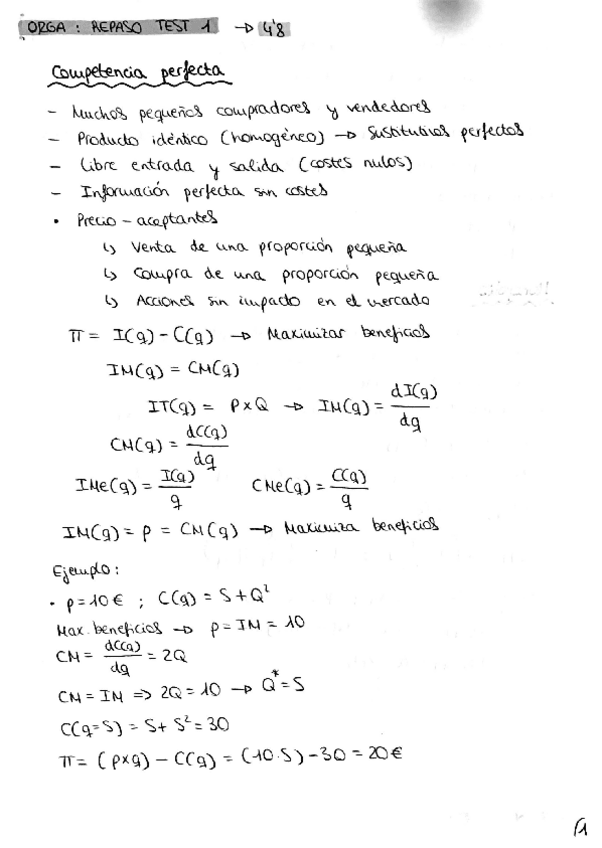 ORGA : REPASO TEST 1 → 4'8
Competencia perfecta
- Muchos pequeños compradores y vendedores
- Producto idéntico (homogéneo) → Sustitutivos perfectos
- Libre entrada y salida (costes nulos)
- Información perfecta sin costes
• Precio - aceptantes
↳ Venta de una proporción pequeña
↳ Compra de una proporción pequeña
↳ Acciones sin impacto en el mercado
π = I(q) - C(q) → Maximizar beneficios
IM(q) = CM(q)
IT(q) = P x Q → IM(q) = dI(q)/dq
CM(q) = dC(q)/dq
IMe(q) = I(q)/q CMe(q) = C(q)/q
IM(q) = p = CM(q) → Maximiza beneficios
Ejemplo:
• p = 10 € ; C(q) = 5 + Q²
Max. beneficios → p = IM = 10
CM = dC(q)/dq = 2Q
CM = IM ⇒ 2Q = 10 → Q* = 5
C(q=5) = 5 + 5² = 30
π = (p x q) - C(q) = (10·5) - 30 = 20 €